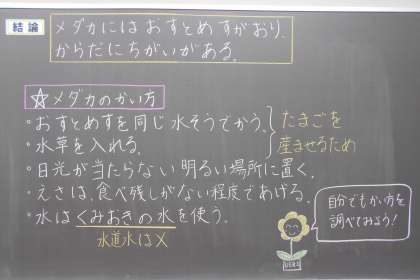 結論
メダカにはおすとめすがおり、
からだにちがいがある。
☆メダカのかい方
・おすとめすを同じ水そうでかう。
・水草を入れる。
たまごを
産ませるため
・日光が当たらない明るい場所に置く。
・えさは、食べ残しがない程度であげる。
・水はくみおきの水を使う。
水道水は×
自分でもかい方を
調べてみよう!